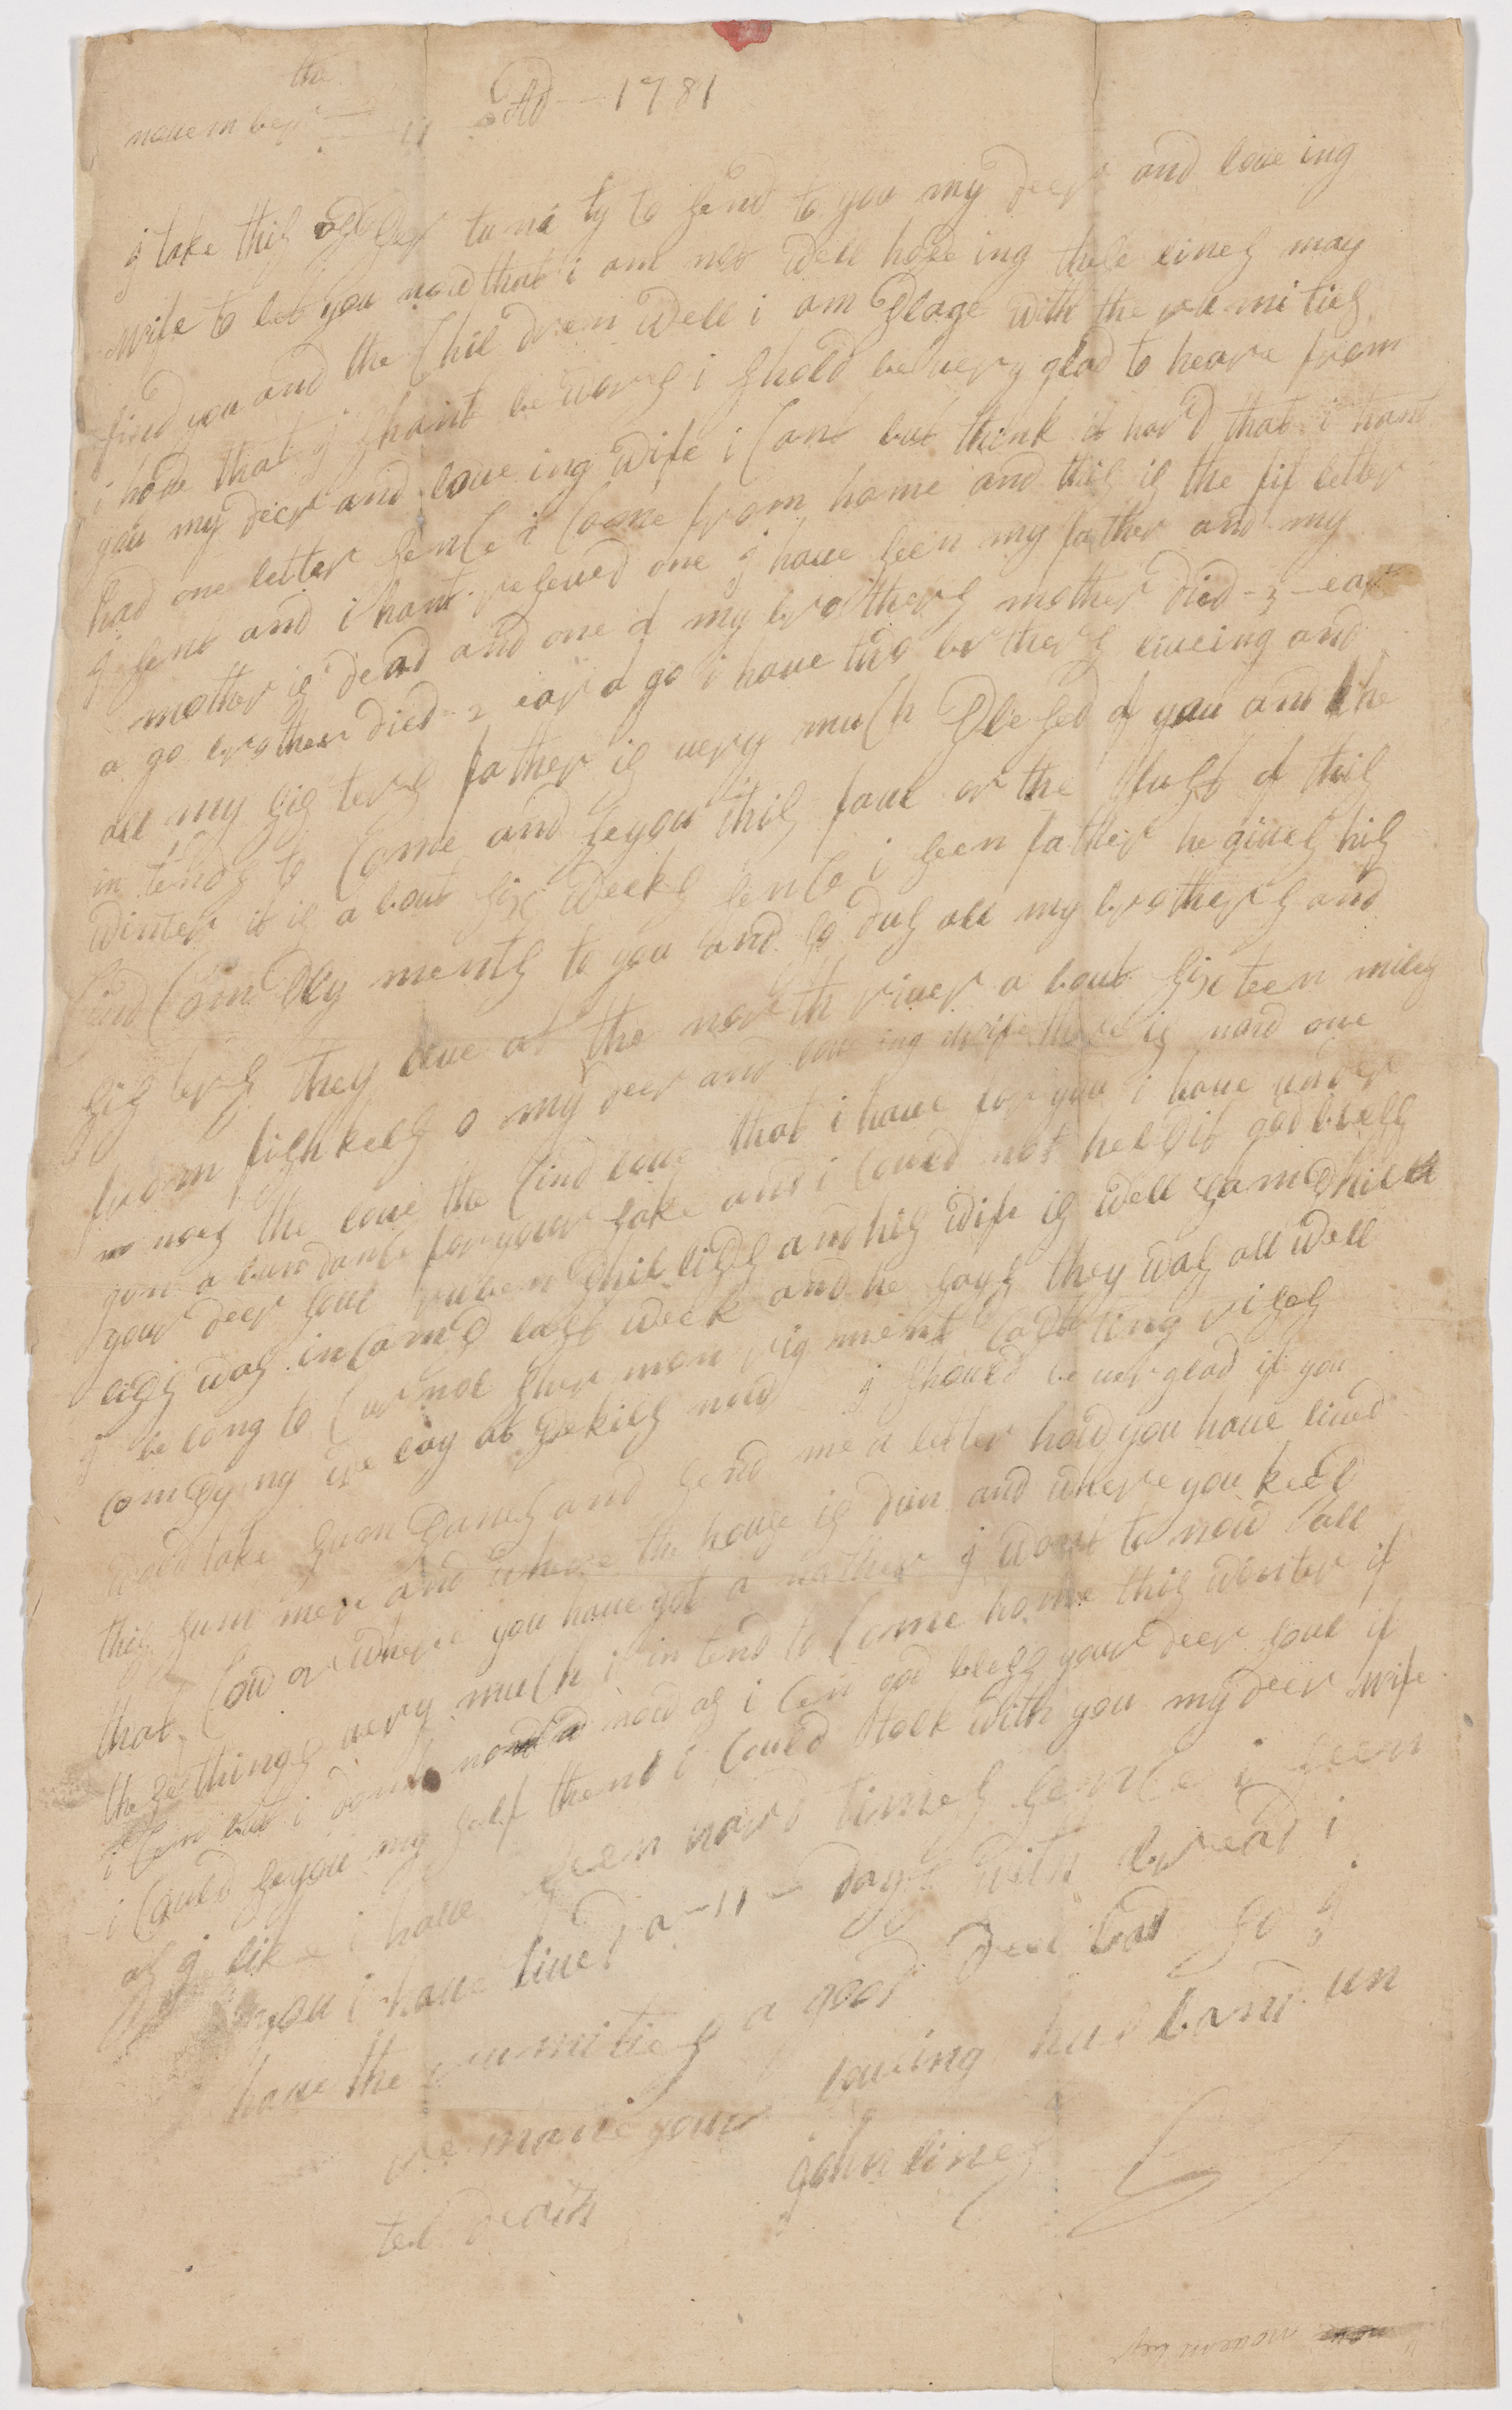 novem ber the 11 AD — 1781
i take this opper tuni ty to send to you my deer and love ing
wife to let you now that i am not well hope ing these lines may
find you and the Chil dren well i am plage with the rumities
i hope that i shant be wors i shold be very glad to heare from
you my deer and love ing wife i Cant but think it hard that i hant
had one letter sence i Come from home and this is the fif letter
i sent and i hant reseved one i have seen my father and my
mother is dead and one of my brothers mother died - 3 - ear
a go brother died - 2 ear a go i have two brothers liveing and
all my sis ters father is very much plesed of you and he
in tends to Come and se you this faul or the fust of this
winter it is a bout six weeks sence i seen father he gives his
Cind Com ply ments to you and so dus all my brothers and
sis ters they live at the north river a bout six teen miles
from fishkels o my deer and love ing wife there is now one
nows the love the Cind love that i have for you i have under
gon a bundance for your sake and i Could not help it god bless
your deer soul ruben philips and his wife is well sam phil
lips was in Camp last week and he says they was all well
i be long to Curnol shur mon rigment Capt ting riles
compyny we lay at pekils now i should be ver glad if you
wood take sum panes and send me a letter how you have lived
this sum mere and where the house is dun and where you keep
that Cow or where you have got a nother i want to now all
these things very much i in tend to Come home this winter if
i Can but i dont now as i Can god bless your deer soul if
i Could se you my self thent i Could talk with you my deer wife
as i like i have seen hard times sence i seen
you i have lived a - 11 - days with bread i
have the rumities a good deel bad so i
re maine your loveing hus band un
tel death john lines
novem ber